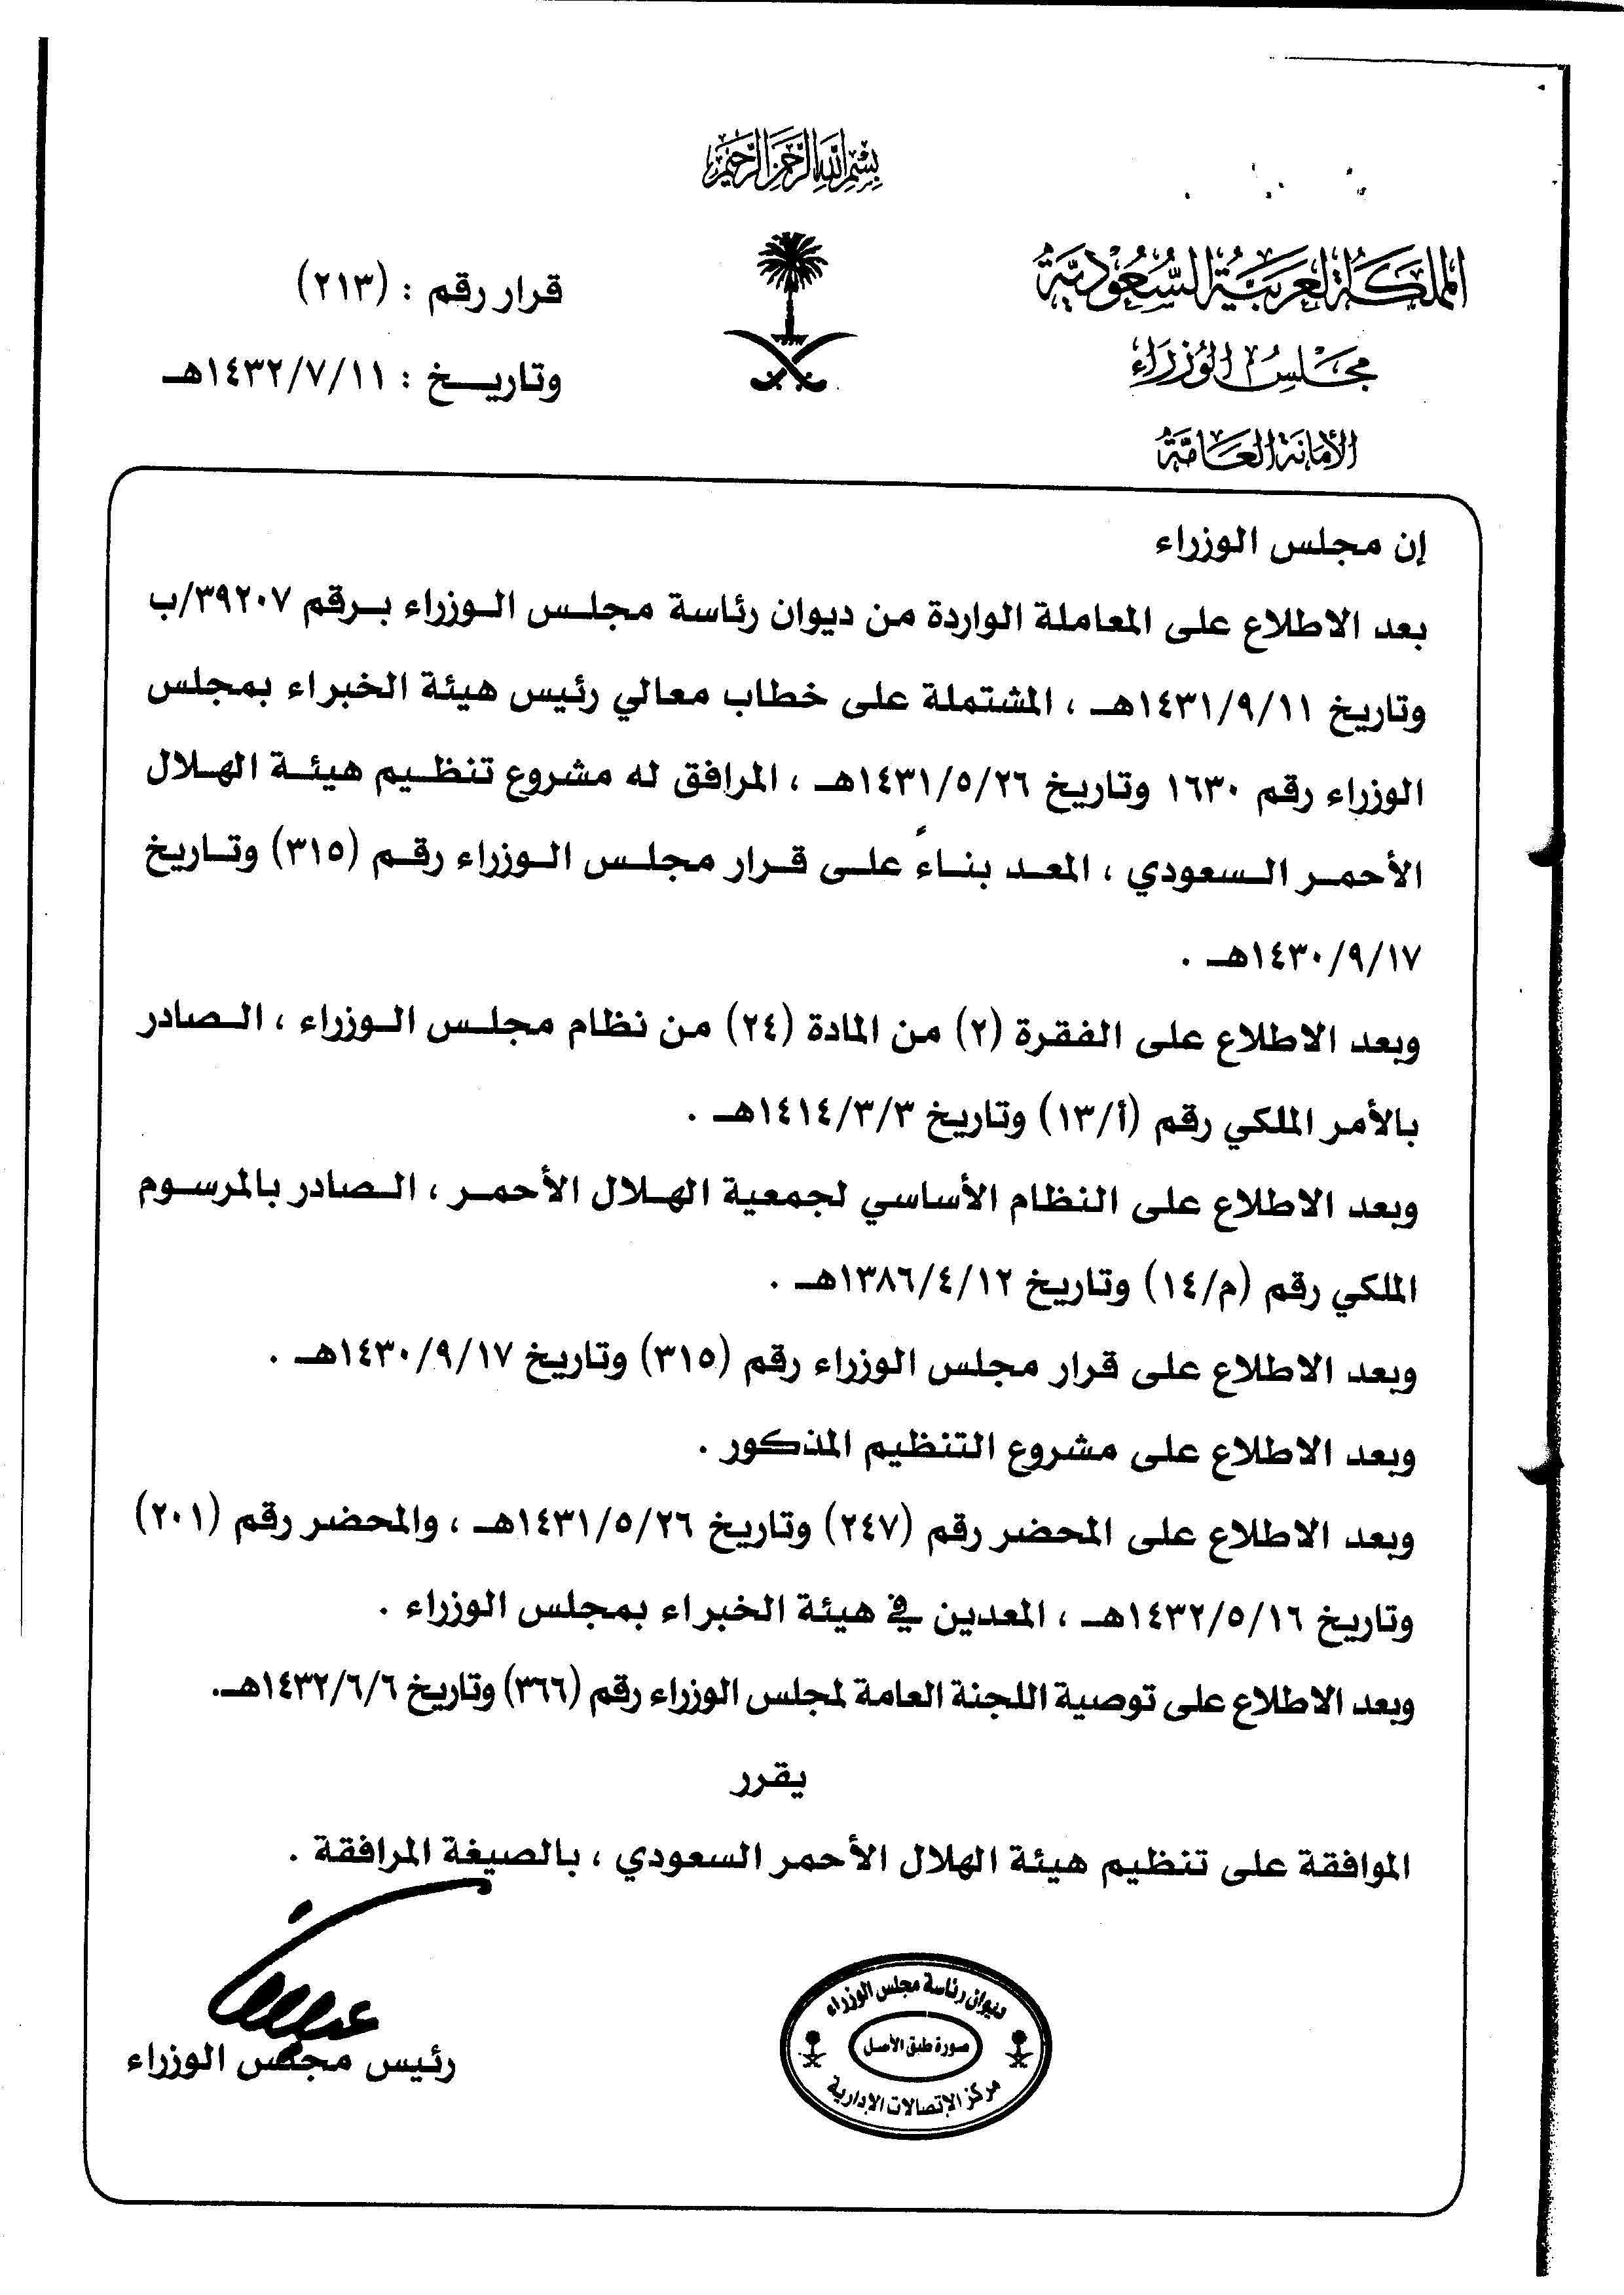 بسم الله الرحمن الرحيم
المملكة العربية السعودية
مجلس الوزراء
الأمانة العامة
قرار رقم : (٢١٣)
وتاريـــخ : ١٤٣٢/٧/١١هـ
إن مجلس الوزراء
بعد الاطلاع على المعاملة الواردة من ديوان رئاسة مجلس الوزراء برقم ٣٩٢٠٧/ب
وتاريخ ١٤٣١/٩/١١هـ ، المشتملة على خطاب معالي رئيس هيئة الخبراء بمجلس
الوزراء رقم ١٦٣٠ وتاريخ ١٤٣١/٥/٢٦هـ ، المرافق له مشروع تنظيم هيئة الهلال
الأحمر السعودي ، المعد بناءً على قرار مجلس الوزراء رقم (٣١٥) وتاريخ
١٤٣٠/٩/١٧هـ .
وبعد الاطلاع على الفقرة (٢) من المادة (٢٤) من نظام مجلس الوزراء ، الصادر
بالأمر الملكي رقم (أ/١٣) وتاريخ ١٤١٤/٣/٣هـ .
وبعد الاطلاع على النظام الأساسي لجمعية الهلال الأحمر ، الصادر بالمرسوم
الملكي رقم (م/١٤) وتاريخ ١٣٨٦/٤/١٢هـ .
وبعد الاطلاع على قرار مجلس الوزراء رقم (٣١٥) وتاريخ ١٤٣٠/٩/١٧هـ .
وبعد الاطلاع على مشروع التنظيم المذكور .
وبعد الاطلاع على المحضر رقم (٢٤٧) وتاريخ ١٤٣١/٥/٢٦هـ ، والمحضر رقم (٢٠١)
وتاريخ ١٤٣٢/٥/١٦هـ ، المعدين في هيئة الخبراء بمجلس الوزراء .
وبعد الاطلاع على توصية اللجنة العامة لمجلس الوزراء رقم (٣٦٦) وتاريخ ١٤٣٢/٦/٦هـ.
يقرر
الموافقة على تنظيم هيئة الهلال الأحمر السعودي ، بالصيغة المرافقة .
ديوان رئاسة مجلس الوزراء
صورة طبق الأصل
مركز الإتصالات الإدارية
رئيس مجلس الوزراء